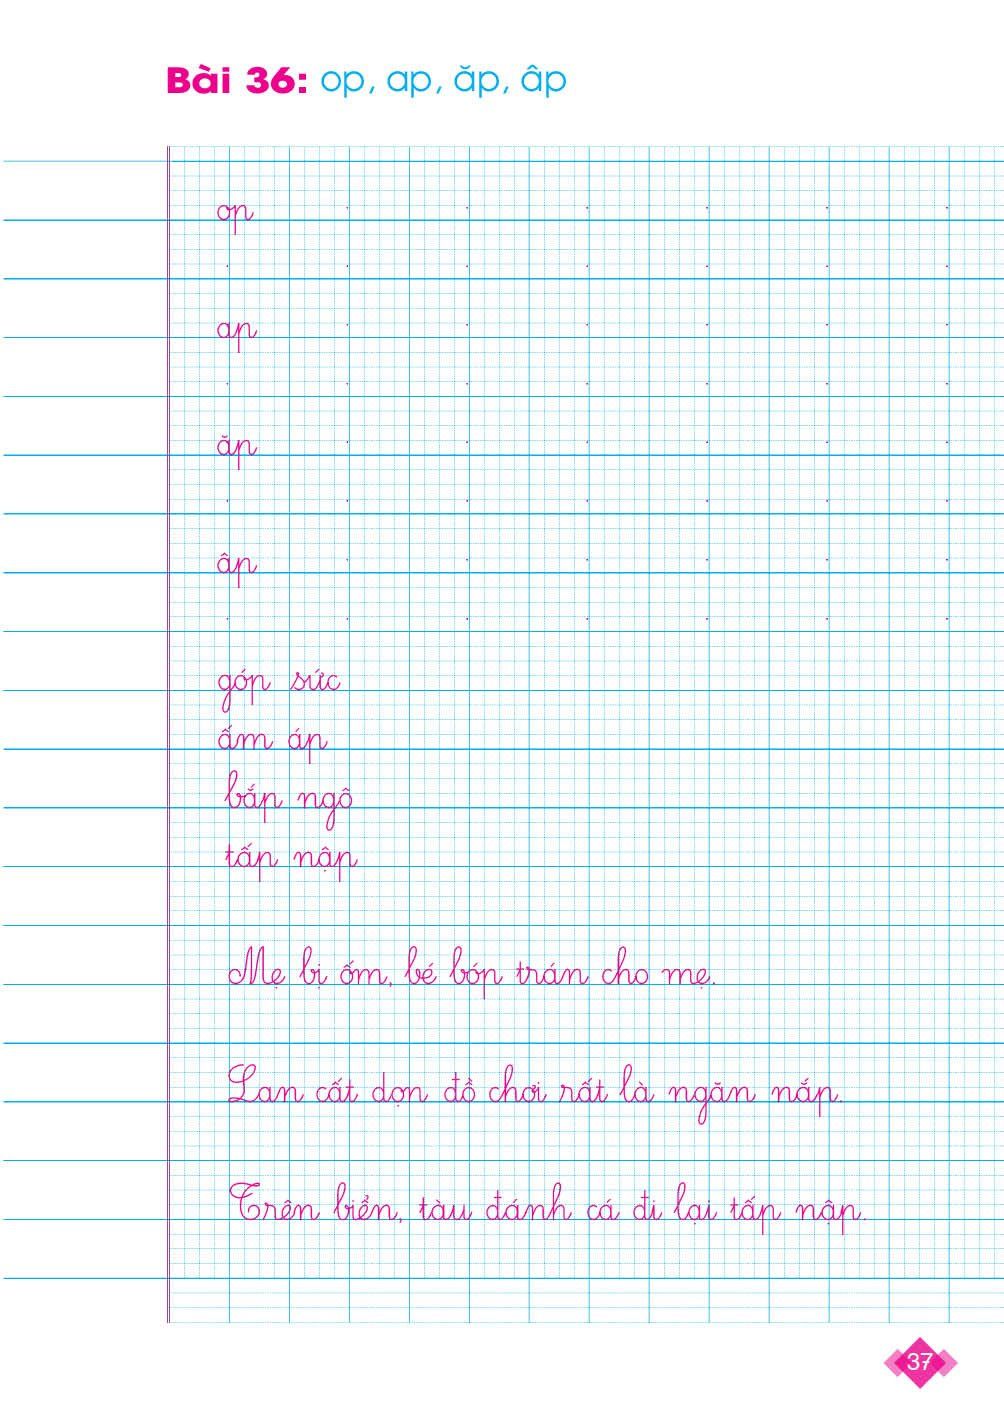 Bài 36: op, ap, ăp, âp
op
ap
ăp
âp
góp sức
ấm áp
bắp ngô
tấp nập
Mẹ bị ốm, bé bóp trán cho mẹ.
Lan cất dọn đồ chơi rất là ngăn nắp.
Trên biển, tàu đánh cá đi lại tấp nập.
37